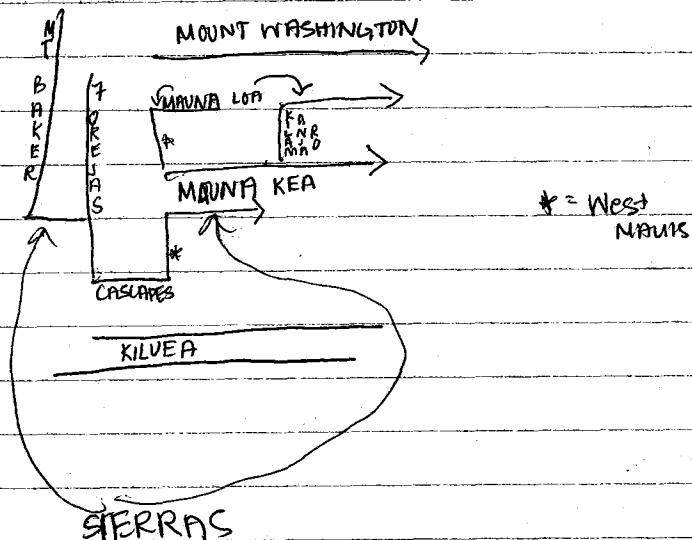 MOUNT WASHINGTON
MT BAKER
7 OREJAS
MAUNA LOA
*
MAUNA KEA
* = West
MAUIS
*
CASCADES
KILUEA
SIERRAS